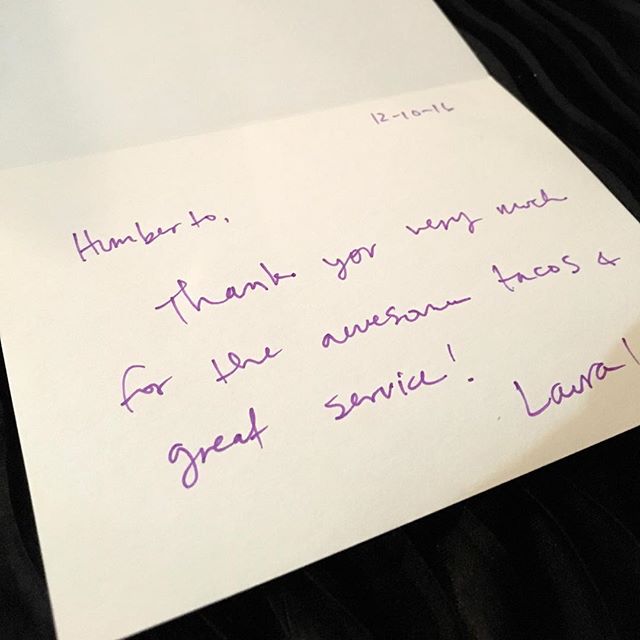 12-10-16
Humberto,
Thank you very much
for the awesome tacos &
great service!
Laura